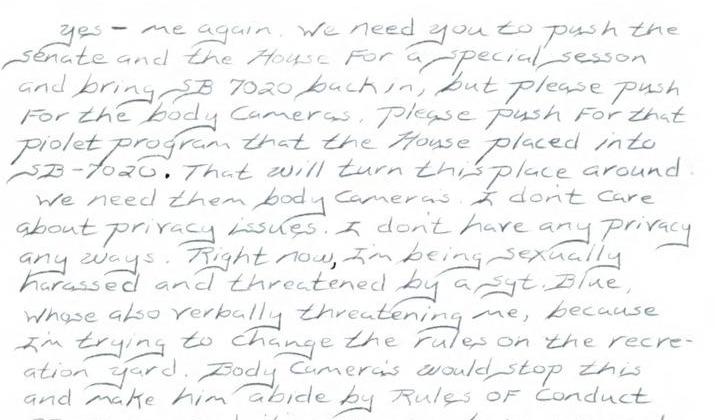 yes - me again. We need you to push the
senate and the House For a special sesson
and bring SB 7020 back in, but please push
For the body Cameras. Please push For that
piolet program that the House placed into
SB-7020. That will turn this place around.
We need them body Cameras. I don't Care
about privacy issues. I don't have any privacy
any ways. Right now, I'm being sexually
harassed and threatened by a Sgt. Blue,
whose also verbally threatening me, because
I'm trying to change the rules on the recre-
ation yard. Body Camera's would stop this
and make him abide by Rules OF Conduct